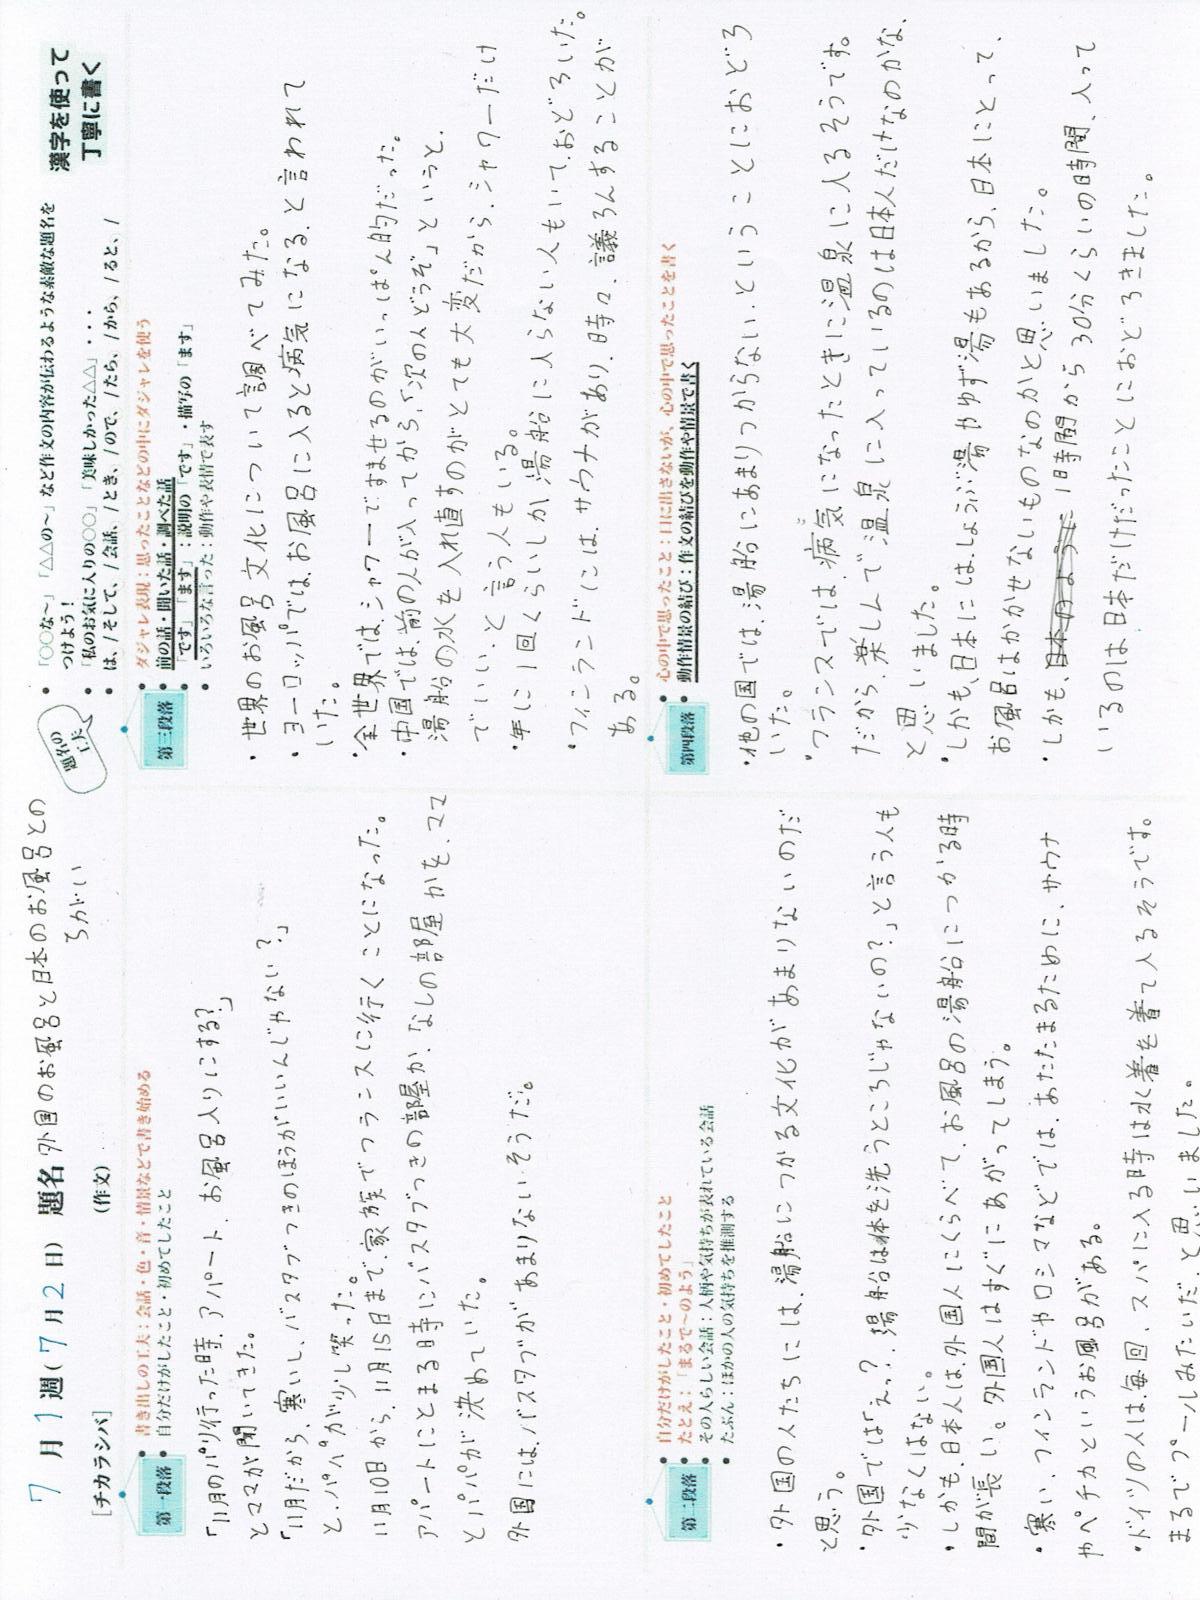 7月1週(7月2日) 題名 外国のお風呂と日本のお風呂との
ちがい
[チカラシバ]
(作文)
題名の工夫
• 「○○な~」「△△の~」など作文の内容が伝わるような素敵な題名を
つけよう!
• 「私のお気に入りの○○」「美味しかった△△」・・・
• は、/そして、/会話、/とき、/ので、/たら、/から、/ると、/
漢字を使って
丁寧に書く
第一段落
• 書き出しの工夫:会話・色・音・情景などで書き始める
• 自分だけがしたこと・初めてしたこと
「11月のパリ行った時、アパート、お風呂入りにする?」
とママが聞いてきた。
「11月だから、寒いし、バスタブつきのほうがいいんじゃない?」
と、パパが少し笑った。
11月10日から、11月15日まで、家族でフランスに行くことになった。
アパートにとまる時にバスタブつきの部屋か、なしの部屋かを、ママ
とパパが決めていた。
外国には、バスタブがあまりないそうだ。
第二段落
• 自分だけがしたこと・初めてしたこと
• たとえ:「まるで~のよう」
• その人らしい会話:人柄や気持ちが表れている会話
• たぶん:ほかの人の気持ちを推測する
・外国の人たちには、湯船につかる文化があまりないのだ
と思う。
・外国では「えっ?、湯船は体を洗うところじゃないの?」と言う人も
少なくはない。
・しかも、日本人は、外国人にくらべて、お風呂の湯船につかる時
間が長い。外国人はすぐにあがってしまう。
・寒い、フィンランドやロシアなどでは、あたたまるために、サウナ
やペチカというお風呂がある。
・ドイツの人は、毎回、スパに入る時は水着を着て入るそうです。
まるでプールみたいだ、と思いました。
第三段落
• ダジャレ表現:思ったことなどの中にダジャレを使う
• 前の話・聞いた話・調べた話
• 「です」「ます」:説明の「です」・描写の「ます」
• いろいろな言った:動作や表情で表す
・世界のお風呂文化について調べてみた。
・ヨーロッパではお風呂に入ると病気になる、と言われて
いた。
・全世界では、シャワーですませるのがいっぱん的だった。
・中国では、前の人が入ってから、「次の人どうぞ」というと、
湯船の水を入れ直すのがとても大変だから、シャワーだけ
でいい、と言う人もいる。
・年に1回くらいしか湯船に入らない人もいて、おどろいた。
・フィンランドには、サウナがあり、時々、議ろんすることが
ある。
第四段落
• 心の中で思ったこと:口に出さないが、心の中で思ったことを書く
• 動作情景の結び:作文の結びを動作や情景で書く
・他の国では、湯船にあまりつからない、ということにおどろ
いた。
・フランスでは、病気になったときに温泉に入るそうです。
だから、楽しんで温泉に入っているのは日本人だけなのかな、
と思いました。
・しかも、日本には、しょうぶ湯やゆず湯もあるから、日本にとって、
お風呂はかかせないものなのかと思いました。
・しかも、1時間から30分くらいの時間、入って
いるのは日本だけだったことにおどろきました。